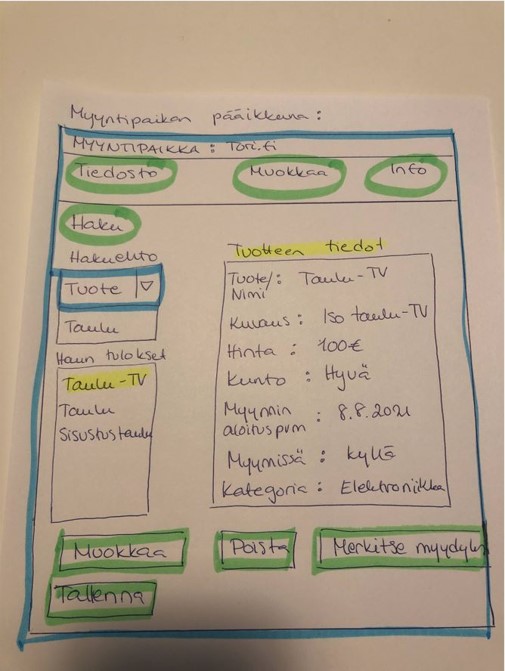 Myyntipaikan pääikkuna :
MYYNTIPAIKKA : Tori.fi
Tiedosto Muokkaa Info
Haku
Hakuehto
Tuote
Taulu
Haun tulokset
Taulu-TV
Taulu
Sisustustaulu
Tuotteen tiedot
Tuote/: Taulu-TV
Nimi
Kuvaus : Iso taulu-TV
Hinta : 100€
Kunto : Hyvä
Myynnin : 8.8.2021
aloituspvm
Myymissä : Kyllä
Kategoria : Elektroniikka
Muokkaa Poista Merkitse myydyksi
Tallenna